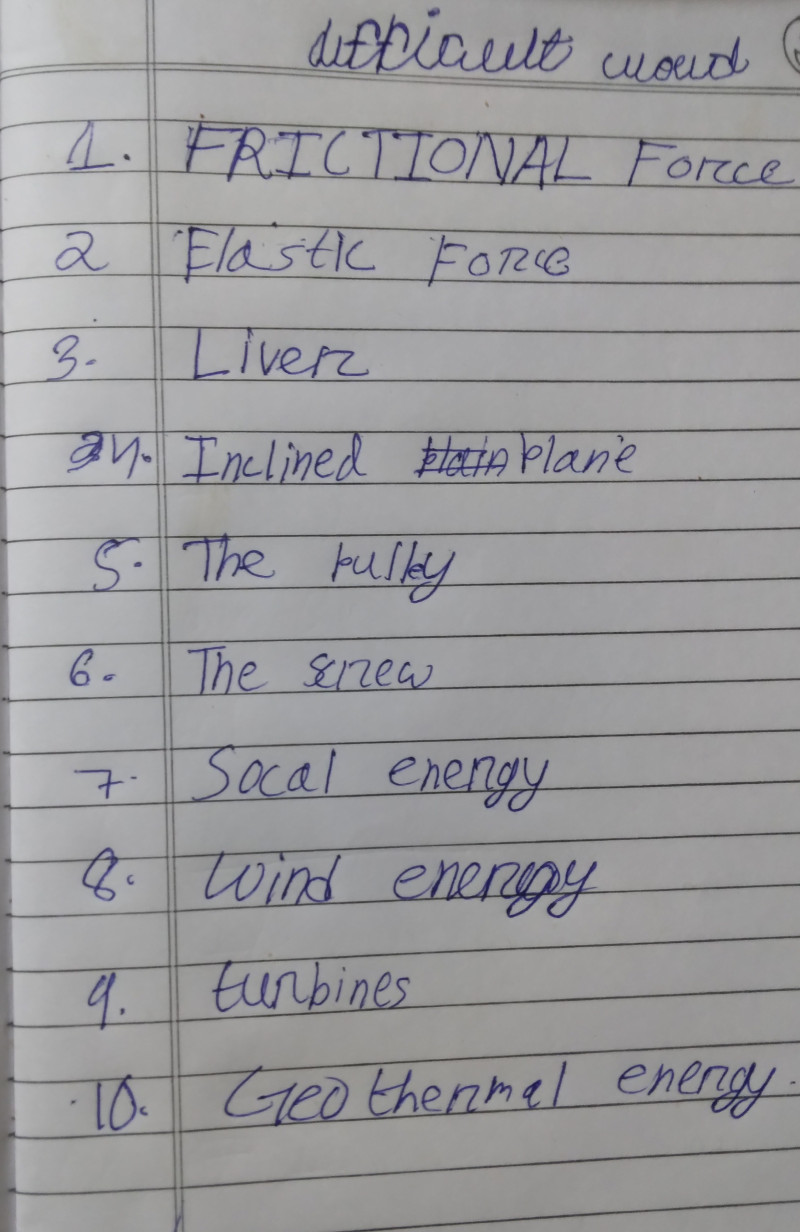 difficult word
1. FRICTIONAL Force
2 Elastic Force
3. Liver
4. Inclined plane
5. The pully
6. The screw
7. Socal energy
8. Wind energy
9. turbines
10. Geo thermal energy.